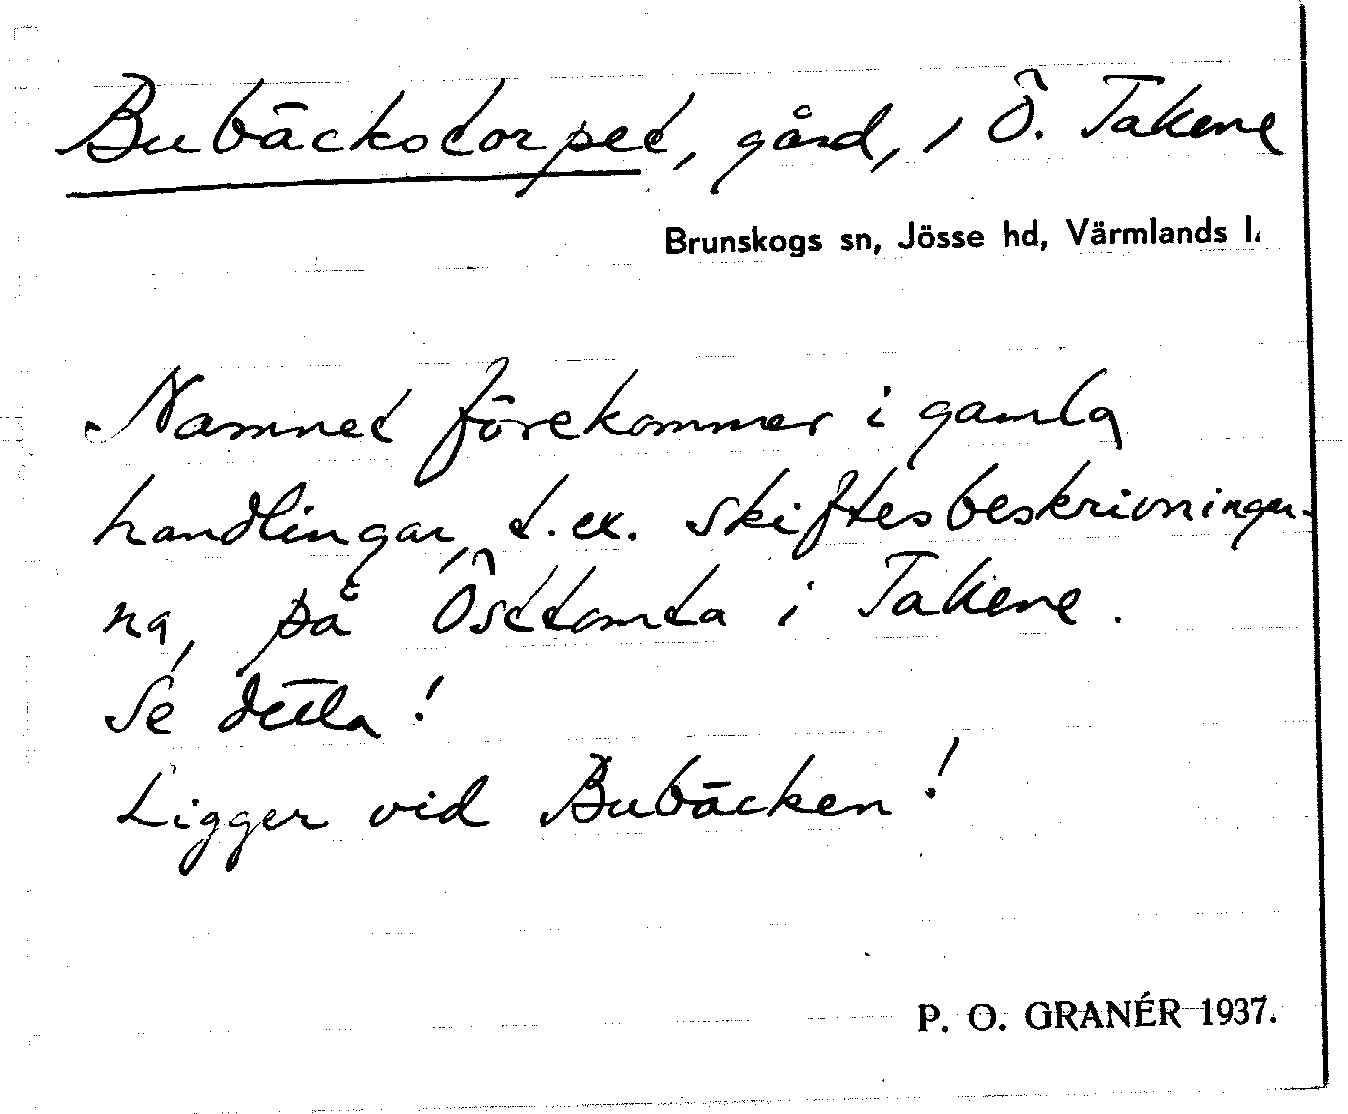 Bubäckstorpet, gård, i Ö. Takene
Brunskogs sn, Jösse hd, Värmlands l.
Namnet förekommer i gamla
handlingar, t.ex. skiftesbeskrivningar-
na, på Östtomta i Takene.
Se detta!
Ligger vid Bubäcken!
P. O. GRANÉR 1937.